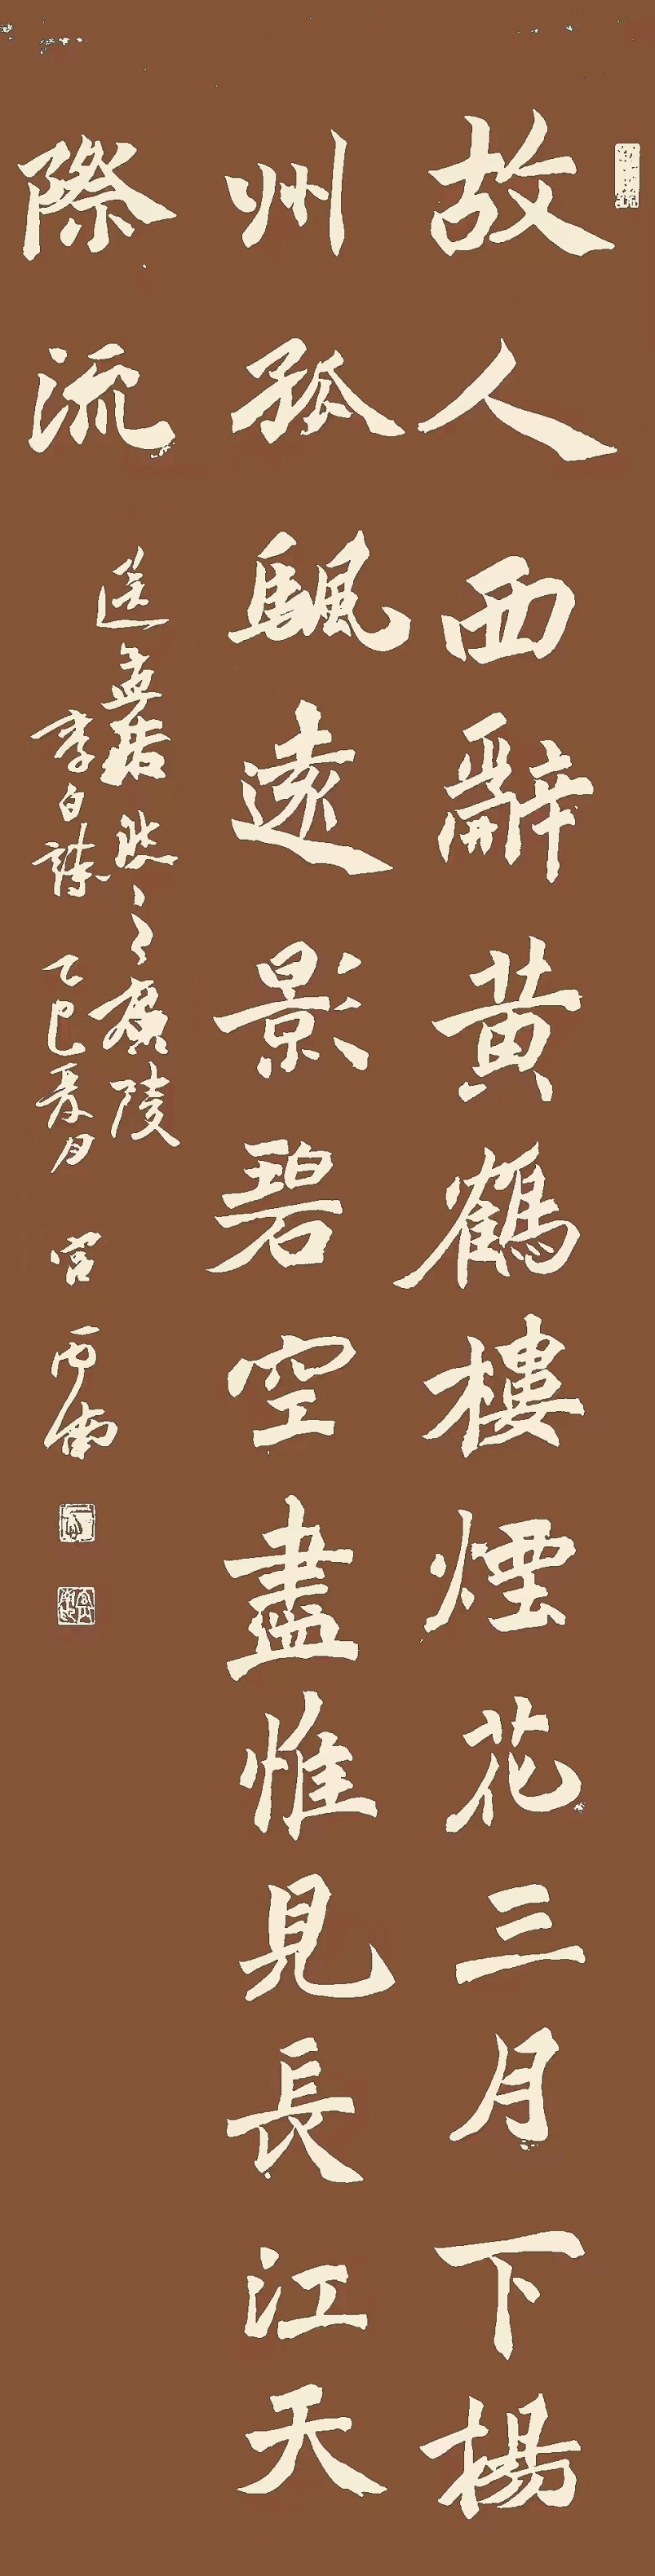 故人西辭黄鶴樓煙花三月下揚
州孤颿遠影碧空盡惟見長江天
際流
送孟浩然之廣陵
李白詩 乙巳夏月 宮